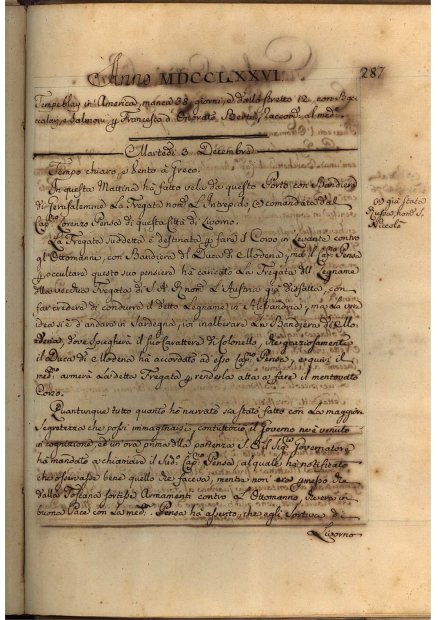 Anno MDCCLXXVI.
287
in America, manca 38 giorni, e dallo Stretto 12, con
e Salmoni, p Francesco d. Onorato Berte, Raccom. al med.
Martedì 3 Decembre
Tempo chiaro, e Vento à Greco.
In questa Mattina hà fatto vela da questo Porto con Bandiera
di Gerusalemme La Fregata nom. L'Intrepido, comandata dal
Cap. Lorenzo Pensa di questa Città di Livorno.
già stata
Russa, nom. S.
Niccolò
La Fregata suddetta è destinata p fare il Corso in Levante contro
gl'Ottomanni, con Bandiera del Duca di Modena, mà il Cap. Pensa
p occultare questo suo pensiero hà caricato La Fregata del Legname
della vecchia Fregata di S. A. R. nom. L'Austria già disfatta, con
far credere di condurre il detto Legname in Alessandria, mà la vera
idea si è d'andare in Sardegna, ivi inalberare La Bandiera di Mo-
dena, dove spiegherà il suo Carattere di Colonello, che graziosamente
il Duca di Modena hà accordato ad esso Cap. Pensa, e quivi il
med. armerà La detta Fregata p renderla atta a fare il mentovato
Corso.
Quantunque tutto quanto hò narrato sia stato fatto con La maggior
Segretezza che possa immaginarsi, contuttociò il Governo ne è venuto
in cognizione, ed un'ora prima della partenza S. E. il Sig. Governatore
hà mandato a chiamare il Sud. Cap. Pensa, al quale hà notificato
che osservasse bene quello che faceva, mentre non era permesso che
dalla Toscana sortisse Armamenti contro gl'Ottomanni, che era in
buona Pace con La med. Pensa hà asserito, che egli sortiva di
Livorno